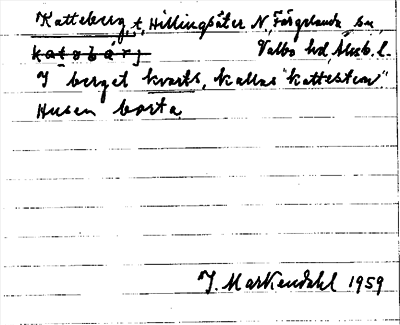 Katteberg, t, Hillingsäter N, Färgelanda sn,
katəbärj Valbo hd, Älvsb. l.
I berget kvarts, kallas "kattesten"
Husen borta.
J. Markendahl 1959